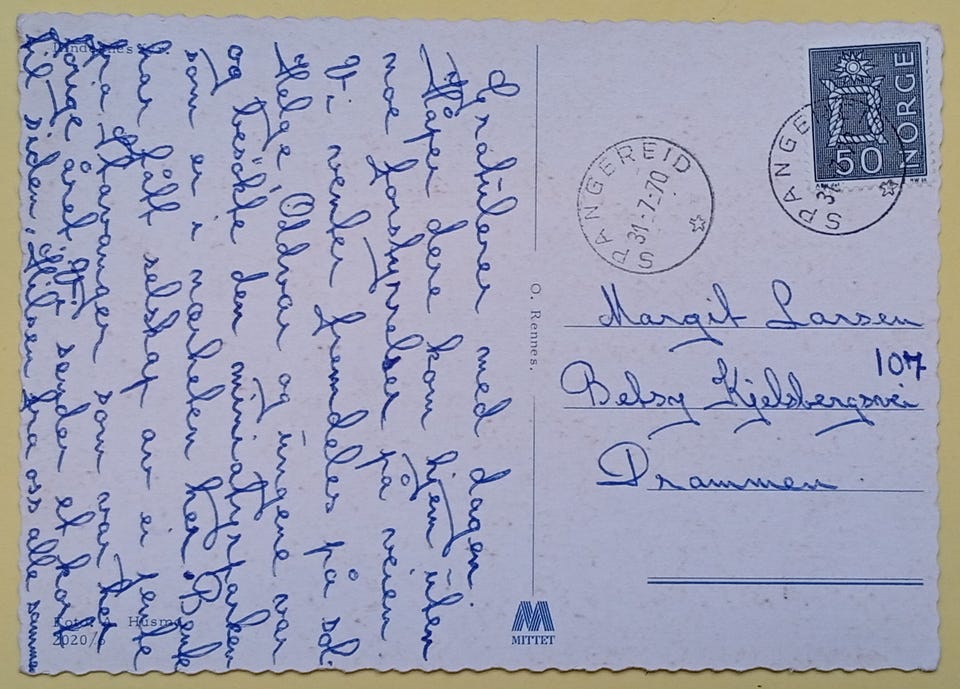 Gratulerer med dagen.
Håper dere kom hjem uten
noe forstyrrelser på veien
Vi venter fremdeles på sol.
Helge, Oddvar og ungene var
og besøkte den miniatyrparken
som er i nærheten her. Bente
har fått selskap av ei jente
fra Stavanger som var her
forige året. Vi sender et kort
til siden. Hilsen fra oss alle sammen
Foto: A. Husmo
2020/6
O. Rennes.
MITTET
NORGE
50
SPANGEREID
31-7-70
SPANGEREID
Margit Larsen
Betsy Kjelsbergsvei 107
Drammen